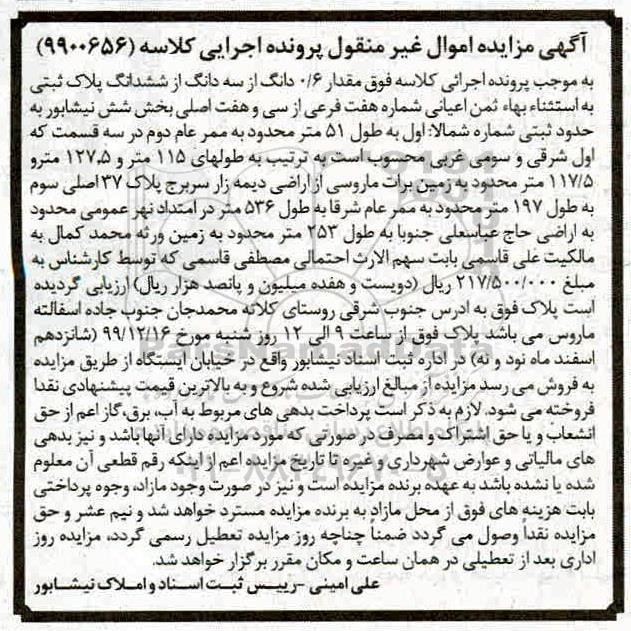 آگهی مزایده اموال غیر منقول پرونده اجرایی کلاسه (۹۹۰۰۶۵۶)
به موجب پرونده اجرائی کلاسه فوق مقدار ۰/۶ دانگ از سه دانگ از ششدانگ پلاک ثبتی
به استثناء بهاء ثمن اعیانی شماره هفت فرعی از سی و هفت اصلی بخش شش نیشابور به
حدود ثبتی شماره شمالا: اول به طول ۵۱ متر محدود به ممر عام دوم در سه قسمت که
اول شرقی و سومی غربی محسوب است به ترتیب به طولهای ۱۱۵ متر و ۱۲۷,۵ مترو
۱۱۷/۵ متر محدود به زمین برات ماروسی از اراضی دیمه زار سربرج پلاک ۳۷ اصلی سوم
به طول ۱۹۷ متر محدود به ممر عام شرقا به طول ۵۳۶ متر در امتداد نهر عمومی محدود
به اراضی حاج عباسعلی جنوبا به طول ۲۵۳ متر محدود به زمین ورثه محمد کمال به
مالکیت علی قاسمی بابت سهم الارث احتمالی مصطفی قاسمی که توسط کارشناس به
مبلغ ۲۱۷/۵۰۰/۰۰۰ ریال (دویست و هفده میلیون و پانصد هزار ریال) ارزیابی گردیده
است پلاک فوق به ادرس جنوب شرقی روستای کلاته محمدجان جنوب جاده اسفالته
ماروس می باشد پلاک فوق از ساعت ۹ الی ۱۲ روز شنبه مورخ ۹۹/۱۲/۱۶ (شانزدهم
اسفند ماه نود و نه) در اداره ثبت اسناد نیشابور واقع در خیابان ایستگاه از طریق مزایده
به فروش می رسد مزایده از مبالغ ارزیابی شده شروع و به بالاترین قیمت پیشنهادی نقدا
فروخته می شود. لازم به ذکر است پرداخت بدهی های مربوط به آب، برق،گاز اعم از حق
انشعاب و یا حق اشتراک و مصرف در صورتی که مورد مزایده دارای آنها باشد و نیز بدهی
های مالیاتی و عوارض شهرداری و غیره تا تاریخ مزایده اعم از اینکه رقم قطعی آن معلوم
شده یا نشده باشد به عهده برنده مزایده است و نیز در صورت وجود مازاد، وجوه پرداختی
بابت هزینه های فوق از محل مازاد به برنده مزایده مسترد خواهد شد و نیم عشر و حق
مزایده نقداً وصول می گردد ضمناً چناچه روز مزایده تعطیل رسمی گردد، مزایده روز
اداری بعد از تعطیلی در همان ساعت و مکان مقرر برگزار خواهد شد.
علی امینی -رییس ثبت اسناد و املاک نیشابور
ParsNamadData